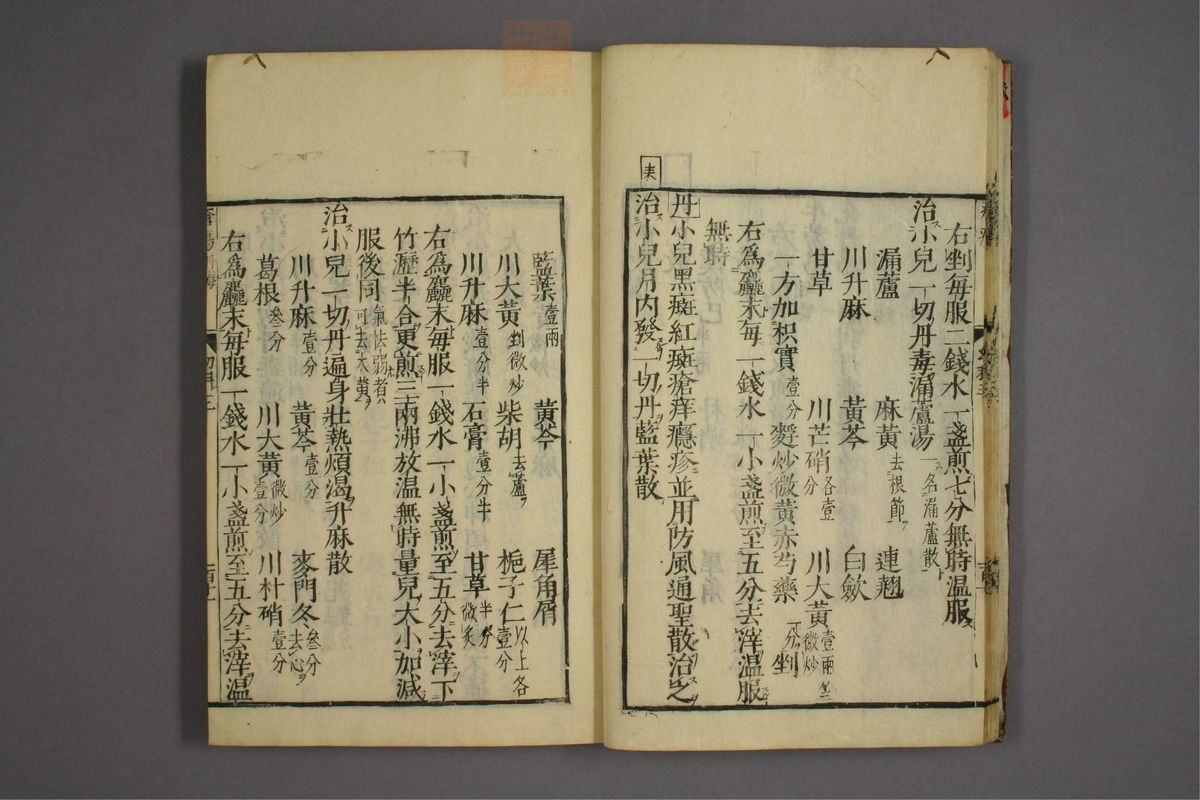 右剉每服二錢水一盞煎七分無時溫服
治小兒一切丹毒漏蘆湯一名漏蘆散
漏蘆 麻黃去根節 連翹
川升麻 黃芩 白歛
甘草 川芒硝各壹分 川大黃壹兩微炒
一方加枳實壹分麩炒微黃赤芍藥 分剉
右爲麤末每一錢水一小盞煎至五分去滓溫服
無時
丹小兒黑斑紅斑瘡痒癮疹並用防風通聖散治之
治小兒月内發一切丹藍葉散
藍葉壹兩 黃芩 犀角屑
川大黃剉微炒 柴胡去蘆 梔子仁以上各壹分
川升麻壹分半 石膏壹分半 甘草半分微炙
右爲麤末每服一錢水一小盞煎至五分去滓下
竹瀝半合更煎三兩沸放溫無時量兒大小加減
服後同氣怯弱者可去大黃
治小兒一切丹遍身壯熱煩渴升麻散
川升麻壹分 黃芩壹分 麥門冬叁分去心
葛根叁分 川大黃微炒壹分 川朴硝壹分
右爲麤末每服一錢水一小盞煎至五分去滓溫